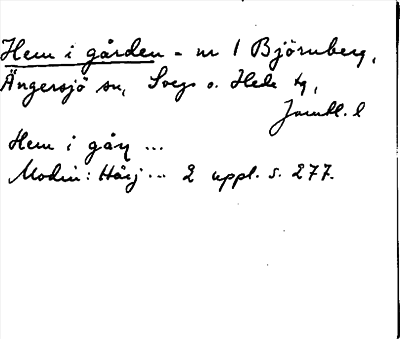 Hem i gården - nr 1 Björnberg,
Ängersjö sn, Svegs o. Hede tg,
Jämtl. l
Hem i gåɳ ...
Modin: Härj... 2 uppl. s. 277.